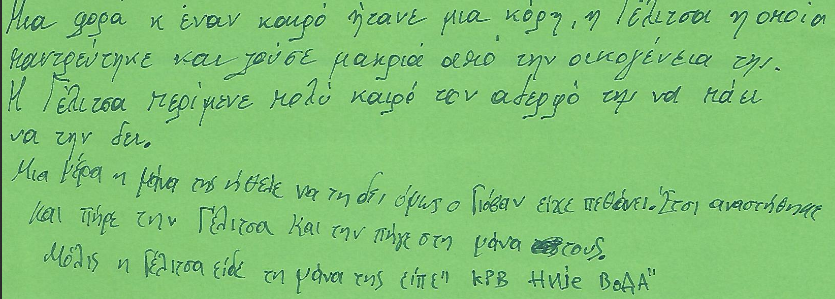 Μια φορά κ έναν καιρό ήτανε μια κόρη, η Γέλιτσα η οποία
παντρεύτηκε και ζούσε μακριά από την οικογένεια της.
Η Γέλιτσα περίμενε πολύ καιρό τον αδερφό της να πάει
να την δει.
Μια μέρα η μάνα της ήθελε να τη δει όμως ο Γιόβαν είχε πεθάνει. Έτσι αναστήθηκε
και πήρε την Γέλιτσα και την πήγε στη μάνα τους.
Μόλις η Γέλιτσα είδε τη μάνα της είπε " КРВ НИЈе ВоДА"